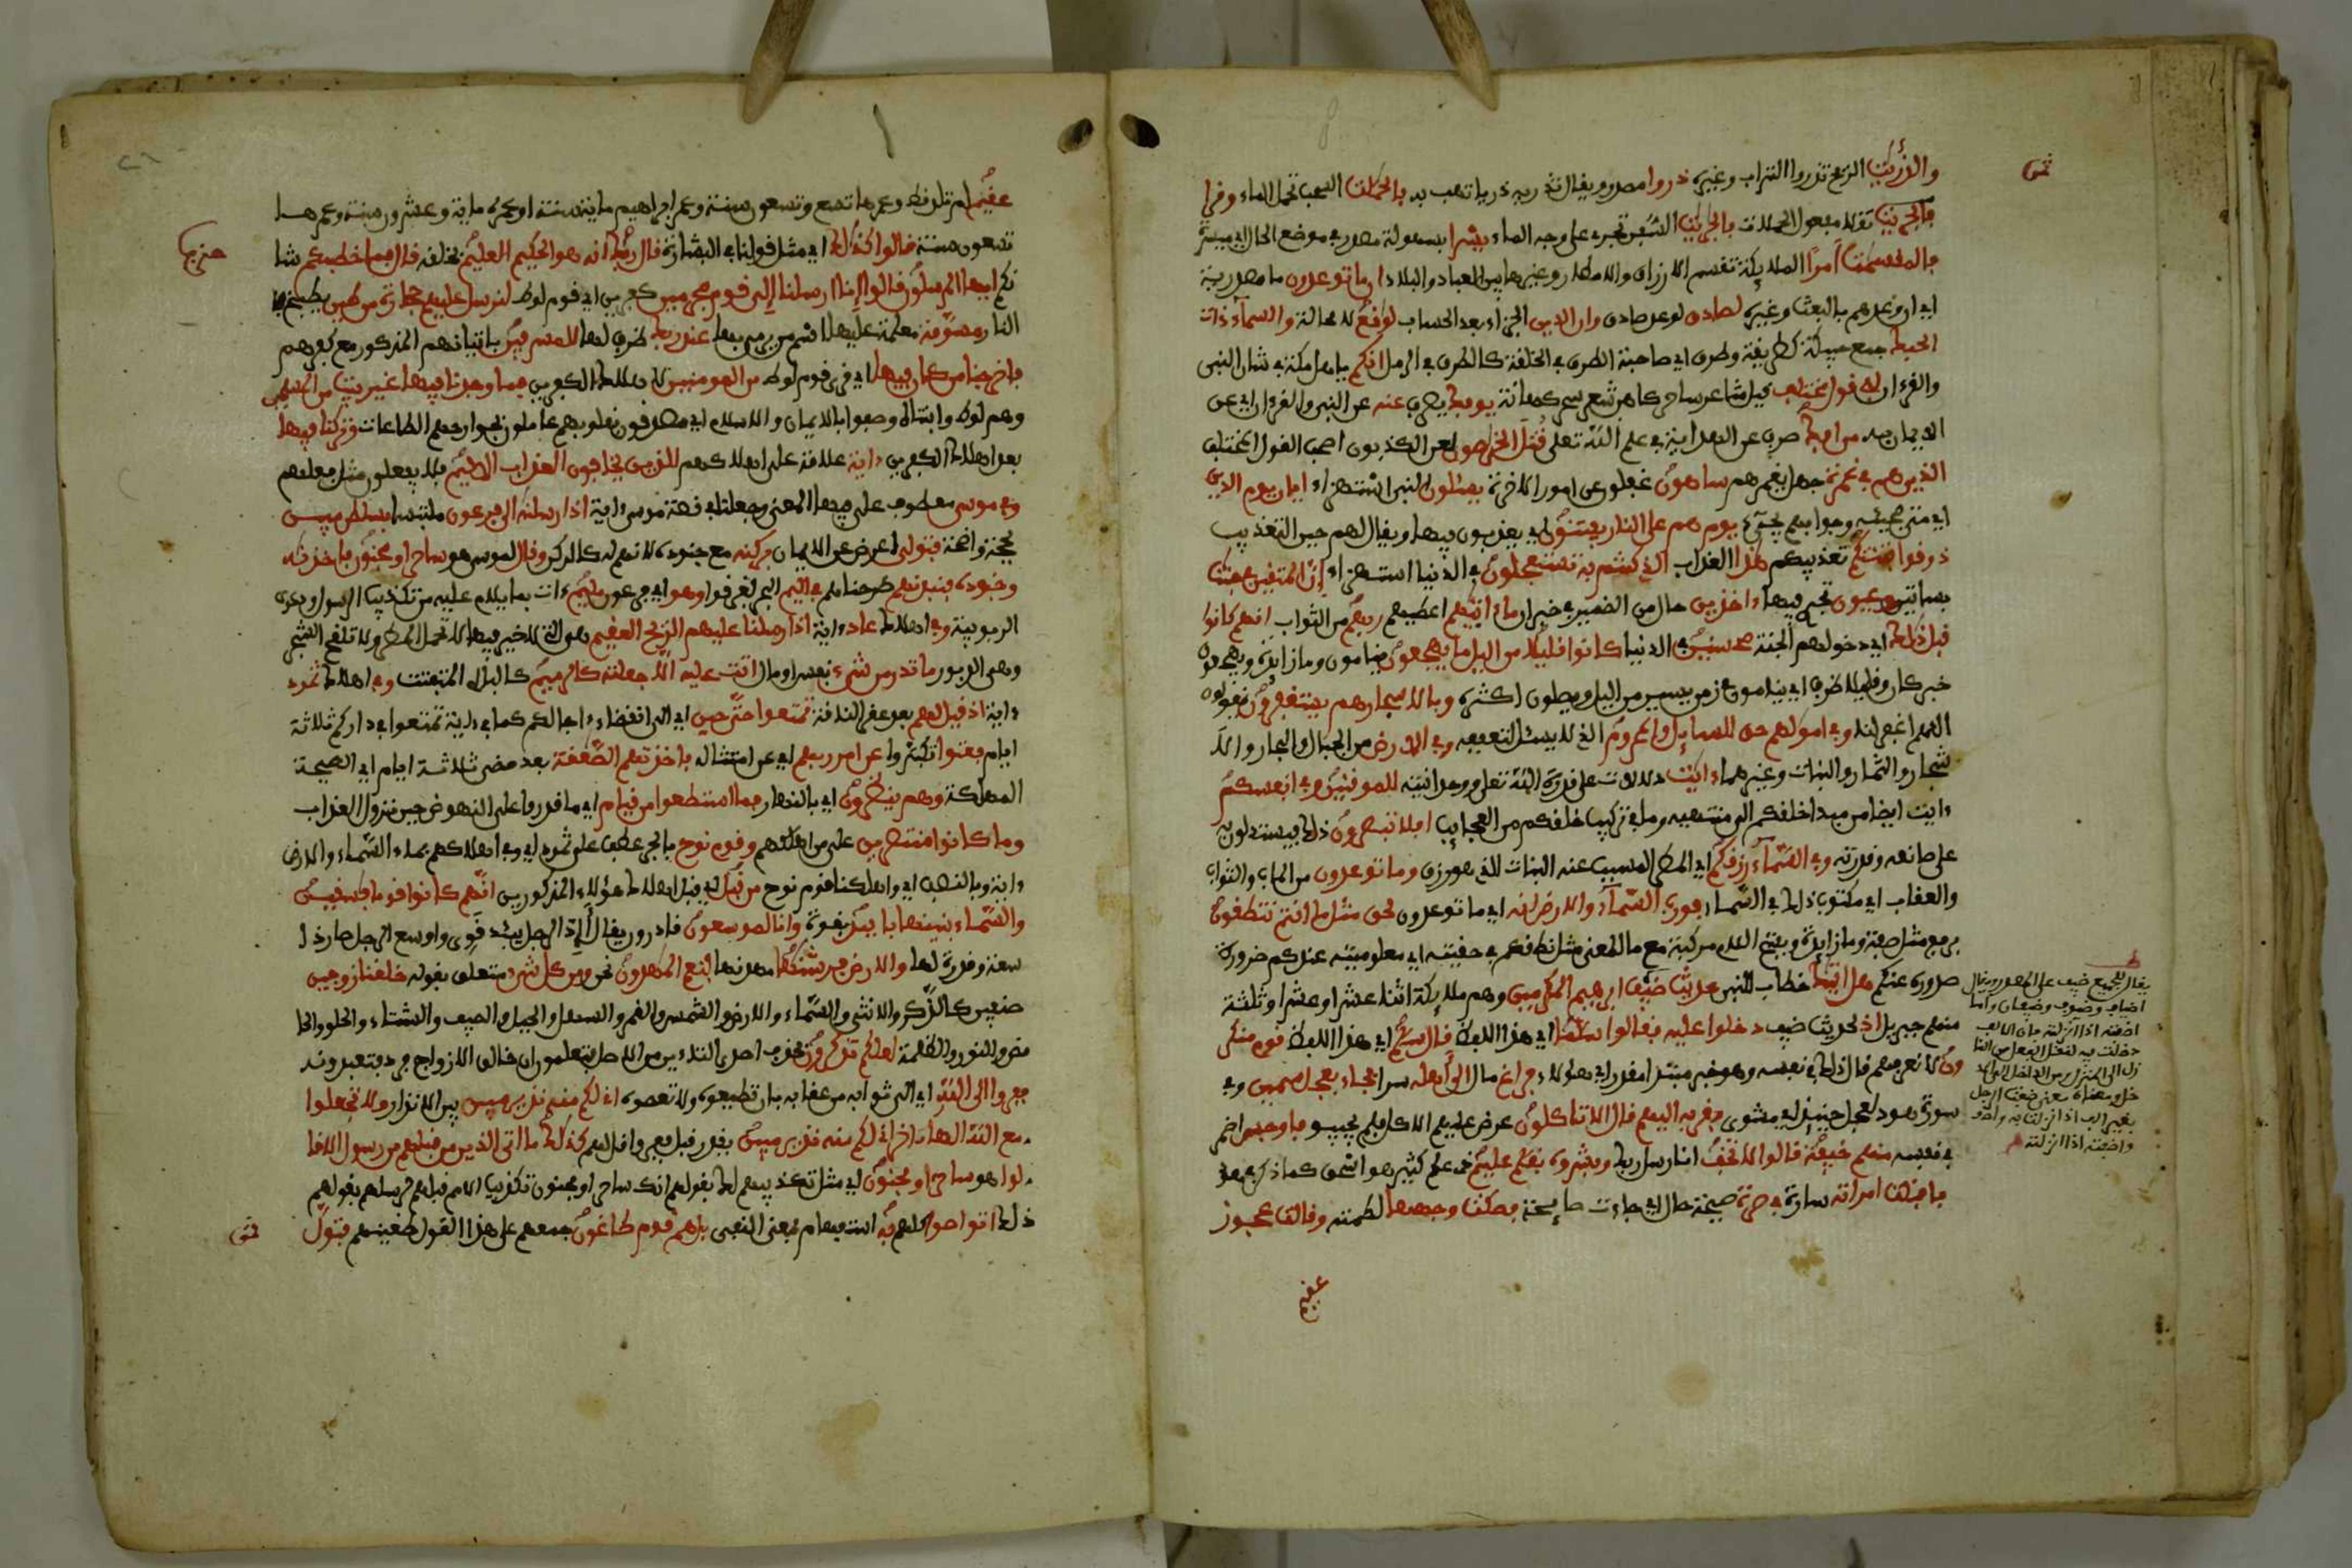 والذريت الريح تذروا التراب وغيره ذروا مصدر ويقال تذريه ذريا تهب به فالحملت السحب تحمل الماء وقرا
ثقلا مفعول الحملات فالجريت السفن تجري على وجه الماء يسرا بسهولة مصدر في موضع الحال اي ميسرة
فالمقسمت امرا الملايكة تقسم الارزاق والامطار وغيرها بين العباد والبلاد انما توعدون ما مصدرية
اي ان وعدهم بالبعث وغيره لصادق لوعد صادق وان الدين الجزاء بعد الحساب لواقع لا محالة والسماء ذات
الحبك جمع حبيكة كطريقة وطرق اي صاحبة الطرق في الخلقة كالطرق في الرمل انكم يا اهل مكة في شان النبي
والقرءان لفي قول مختلف قيل شاعر ساحر كاهن شعر سحر كهانة يوفك يصرف عنه عن النبي والقرءان اي عن
الايمان به من افك صرف عن الهداية في علم الله تعلى قتل الخراصون لعن الكذبون اصحب القول المختلف
الذين هم في غمرة جهل يغمرهم ساهون غفلون عن امور الاخرة يسئلون النبي استهزاء ايان يوم الدين
اي متى مجيئه وجوابهم يجيء يوم هم على النار يفتنون اي يعذبون فيها ويقال لهم حين التعذيب
ذوقوا فتنتكم تعذيبكم هذا العذاب الذي كنتم به تستعجلون في الدنيا استهزاء ان المتقين في جنت
بساتين وعيون تجري فيها ءاخذين حال من الضمير في خبر ان ما ءاتيهم اعطيهم ربهم من الثواب انهم كانوا
قبل ذلك اي دخولهم الجنة محسنين في الدنيا كانوا قليلا من اليل ما يهجعون ينامون وما زايدة ويهجعون
خبر كان وقليلا ظرف اي ينامون في زمن يسير من اليل ويصلون اكثره وبالاسحار هم يستغفرون يقولون
اللهم اغفر لنا وفي امولهم حق للسايل والمحروم الذي لا يسئل لتعففه وفي الارض من الجبال والبحار والا
شجار والثمار والنبات وغيرها ءايت دلالات على قدرة الله تعلى ووحدانيته للموقنين وفي انفسكم
ءايت ايضا من مبدا خلقكم الى منتهيه وما في تركيب خلقكم من العجايب افلا تبصرون ذلك فيستدلون به
على صانعه وقدرته وفي السماء رزقكم اي المطر المسبب عنه النبات الذي هو رزق وما توعدون من الماب والثواب
والعقاب اي مكتوب ذلك في السماء فورب السماء والارض انه اي ما توعدون لحق مثل ما انتم تنطقون
برفع مثل صفة وما زايدة وبفتح اللام مركبة مع ما المعنى مثل نطقكم في حقيته اي معلوميته عندكم ضرورة
صدوره عنكم هل اتيك خطاب للنبي حديث ضيف ابرهيم المكرمين وهم ملايكة اثنا عشر او عشر او ثلثة
منهم جبريل اذ لحديث ضيف دخلوا عليه فقالوا سلما اي هذا اللفظ قال سلم اي هذا اللفظ قوم منكر
ون لا نعرفهم قال ذلك في نفسه وهو خبر مبتدا مقدر اي هؤلاء فراغ مال الى اهله سرا فجاء بعجل سمين وفي
سورة هود بعجل حنيذ اي مشوي فقربه اليهم قال الا تاكلون عرض عليهم الاكل فلم يجيبوا فاوجس اضمر
في نفسه منهم خيفة قالوا لا تخف انا رسل ربك وبشروه بغلم عليم ذي علم كثير هو اسحق كما ذكر في هود
فاقبلت امراته سارة في صرة صيحة حال اي جاءت صايحة فصكت وجهها لطمته وقالت عجوز
عقيم
ثمن
يقال للجميع ضيف على المصدر ويقال
اضياف وضيوف وضيفان واما
اضفته اذا انزلته فان الالف
دخلت فيه لنقل الفعل من النا
زل الى المنزل من الداخل الى المد
خل ومعناه معنى ضفت الرجل
بغير الف اذا نزلت به
واضفته اذا انزلته
عقيم لم تلد قط وعمرها تسع وتسعون سنة وعمر ابراهيم ماية سنة او عمره ماية وعشرون سنة وعمرها
تسعون سنة قالوا كذلك اي مثل قولنا في البشارة قال ربك انه هو الحكيم العليم بخلقه قال فما خطبكم شا
نكم ايها المرسلون قالوا انا ارسلنا الى قوم مجرمين كفرين اي قوم لوط لنرسل عليهم حجارة من طين يطبخ في
النار مسومة معلمة عليها اسم من يرمى بها عند ربك ظرف لها للمسرفين باتيانهم الذكور مع كفرهم
فاخرجنا من كان فيها اي قرى قوم لوط من المومنين لاهلاك الكفرين فما وجدنا فيها غير بيت من المسلمين
وهم لوط وابنتاه وصفوا بالايمان والاسلام اي مصدقون بقلوبهم عاملون بجوارحهم الطاعات وتركنا فيها
بعد اهلاك الكفرين ءاية علامة على اهلاكهم للذين يخافون العذاب الاليم فلا يفعلون مثل فعلهم
وفي موسى معطوف على فيها المعنى وجعلنا في قصة موسى ءاية اذ ارسلنه الى فرعون ملتبسا بسلطن مبين
بحجة واضحة فتولى اعرض عن الايمان بركنه مع جنوده لانهم له كالركن وقال لموسى هو ساحر او مجنون فاخذنه
وجنوده فنبذنهم طرحناهم في اليم البحر فغرقوا وهو اي فرعون مليم ءات بما يلام عليه من تكذيب الرسول ودعوى
الربوبية وفي اهلاك عاد ءاية اذ ارسلنا عليهم الريح العقيم هي التي لا خير فيها لانها لا تحمل المطر ولا تلقح الشجر
وهي الدبور ما تذر من شيء نفس او مال اتت عليه الا جعلته كالرميم كالبالي المتفتت وفي اهلاك ثمود
ءاية اذ قيل لهم بعد عقر الناقة تمتعوا حتى حين اي الى انقضاء ءاجالكم كما في ءاية تمتعوا في داركم ثلاثة
ايام فعتوا تكبروا عن امر ربهم اي عن امتثاله فاخذتهم الصعقة بعد مضي ثلاثة ايام اي الصيحة
المهلكة وهم ينظرون اي بالنهار فما استطعوا من قيام اي ما قدروا على النهوض حين نزول العذاب
وما كانوا منتصرين على من اهلكهم وقوم نوح بالجر عطف على ثمود اي وفي اهلاكهم بماء السماء والارض
ءاية وبالنصب اي واهلكنا قوم نوح من قبل اي قبل اهلاك هؤلاء المذكورين انهم كانوا قوما فسقين
والسماء بنينها بايد بقوة وانا لموسعون قادرون يقال ءاد الرجل يئيد قوي واوسع الرجل صار ذا
سعة وقدرة لها والارض فرشنها مهدنها فنعم المهدون نحن ومن كل شيء متعلق بقوله خلقنا زوجين
صنفين كالذكر والانثى والسماء والارض والشمس والقمر والسهل والجبل والصيف والشتاء والحلو والحا
مض والنور والظلمة لعلكم تذكرون بحذف احدى التاءين من الاصل فتعلمون ان خالق الازواج فرد فتعبدونه
ففروا الى الله اي الى ثوابه من عقابه بان تطيعوه ولا تعصوه اني لكم منه نذير مبين بين الانذار ولا تجعلوا
مع الله الها ءاخر اني لكم منه نذير مبين يقدر قبل ففروا قل لهم كذلك ما اتى الذين من قبلهم من رسول الا قا
لوا هو ساحر او مجنون اي مثل تكذيبهم لك بقولهم انك ساحر او مجنون تكذيب الامم قبلهم رسلهم بقولهم
ذلك اتواصوا كلهم به استفهام بمعنى النفي بل هم قوم طاغون جمعهم على هذا القول طغينهم فتول
حزب
ثمن